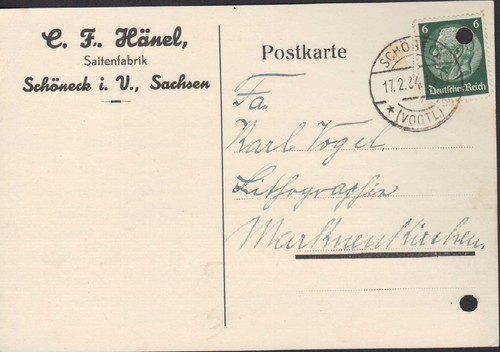 C. F. Hänel,
Saitenfabrik
Schöneck i. V., Sachsen
Postkarte
6 6
Deutsches Reich
SCHÖNECK
17.2.34
* (VOGTL)
Fa.
Karl Vogel,
Lithographie
Markneukirchen